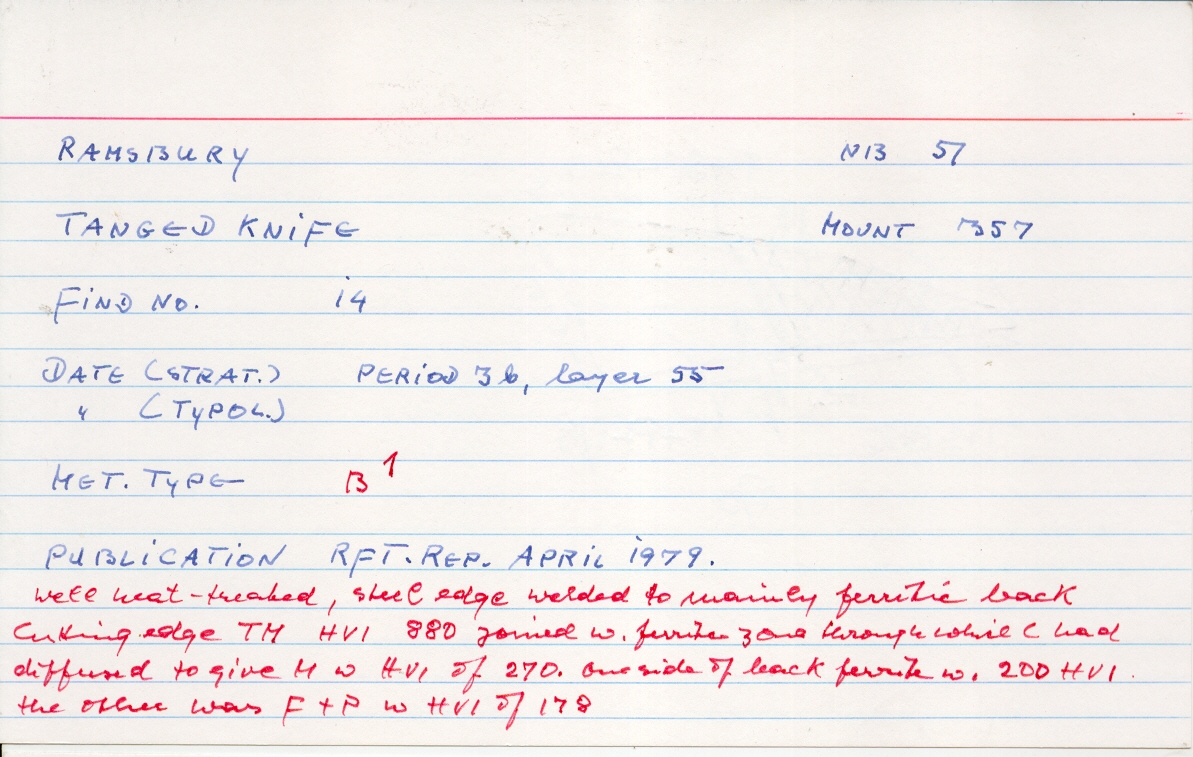 RAMSBURY NB 57
TANGED KNIFE MOUNT 357
FIND NO. 14
DATE (STRAT.) PERIOD 3b, layer 55
" (TYPOL.)
MET. TYPE B1
PUBLICATION RFT. REP. APRIL 1979.
well heat-treated, steel edge welded to mainly ferritic back
Cutting edge TM HV1 880 joined w. ferrite zone through which C had
diffused to give M w HV1 of 270. one side of back ferrite w. 200 HV1.
the other was F+P w HV1 of 178